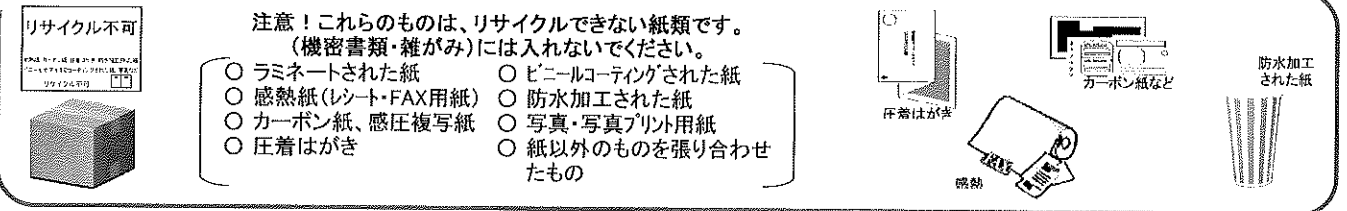 リサイクル不可
リサイクル不可
注意！これらのものは、リサイクルできない紙類です。
(機密書類・雑がみ)には入れないでください。
○ ラミネートされた紙
○ 感熱紙(レシート・FAX用紙)
○ カーボン紙、感圧複写紙
○ 圧着はがき
○ ビニールコーティングされた紙
○ 防水加工された紙
○ 写真・写真プリント用紙
○ 紙以外のものを張り合わせ
たもの
圧着はがき
カーボン紙など
感熱
防水加工
された紙